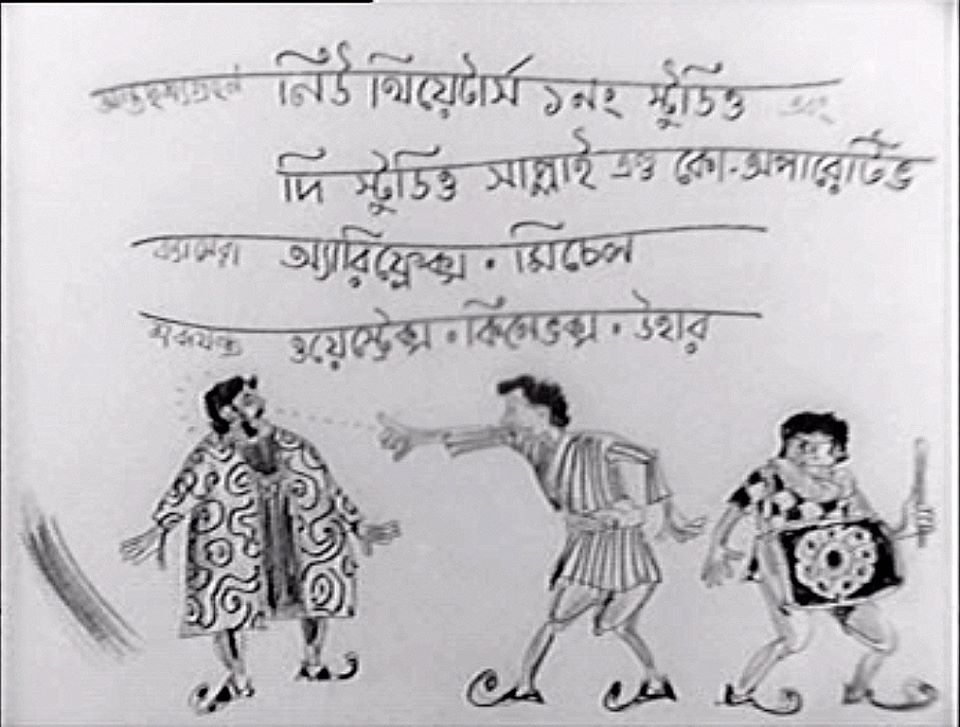 অন্তর্দৃশ্যগ্রহণ নিউ থিয়েটার্স ১নং স্টুডিও এবং
দি স্টুডিও সাপ্লাই এণ্ড কো-অপারেটিভ
ক্যামেরা অ্যারিফ্লেক্স • মিচেল
শব্দযন্ত্র ওয়েস্ট্রেক্স • কিনেভক্স • উহার